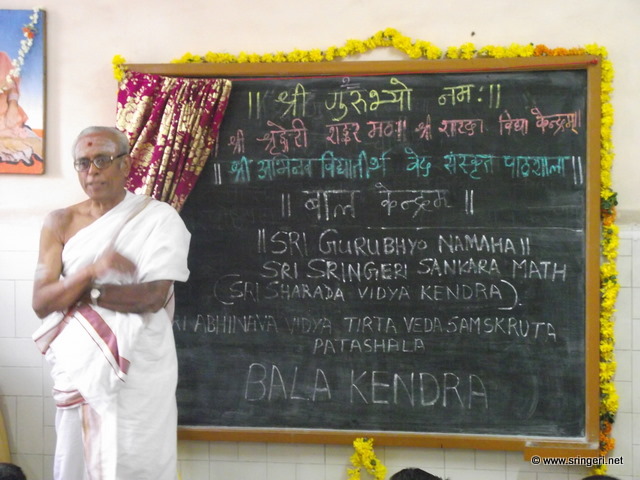 || श्री गुरुभ्यो नमः ||
श्री शृङ्गेरी शङ्कर मठः। श्री शारदा विद्या केन्द्रम्।
|| श्री अभिनव विद्यातीर्थ वेद संस्कृत पाठशाला ||
|| बाल केन्द्रम ||
|| SRI GURUBHYO NAMAHA ||
SRI SRINGERI SANKARA MATH
(SRI SHARADA VIDYA KENDRA).
ABHINAVA VIDYA TIRTA VEDA SAMSKRUTA
PATASHALA
BALA KENDRA
© www.sringeri.net